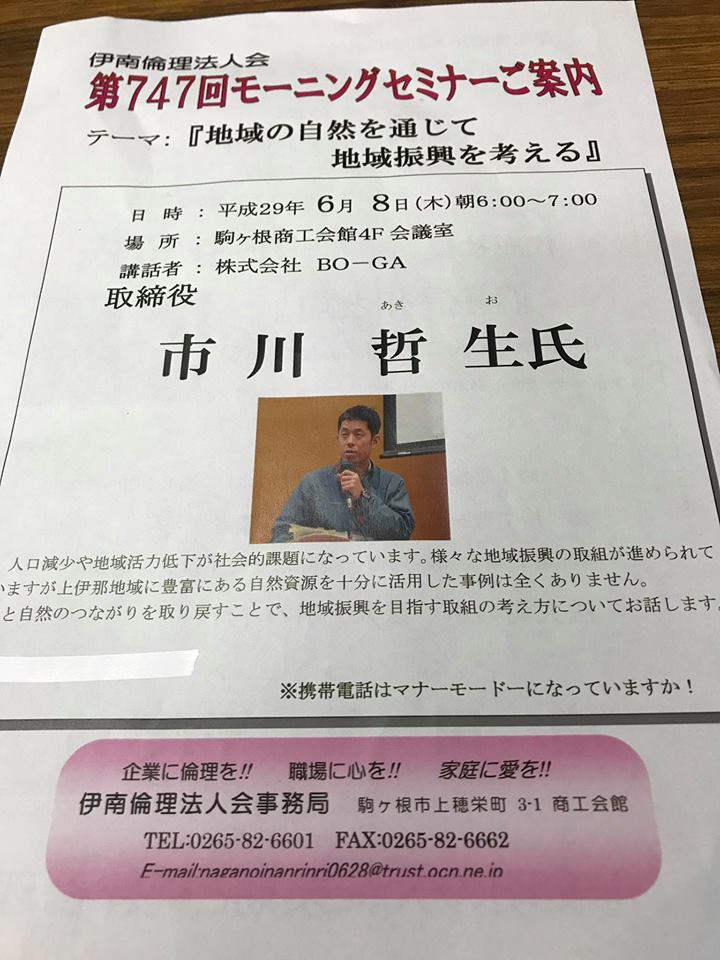 伊南倫理法人会
第747回モーニングセミナーご案内
テーマ:『地域の自然を通じて
地域振興を考える』
日 時 : 平成29年 6月 8日(木)朝6:00~7:00
場 所 : 駒ヶ根商工会館4F 会議室
講話者 : 株式会社 BO-GA
取締役
あき お
市 川 哲 生氏
人口減少や地域活力低下が社会的課題になっています。様々な地域振興の取組が進められて
いますが上伊那地域に豊富にある自然資源を十分に活用した事例は全くありません。
と自然のつながりを取り戻すことで、地域振興を目指す取組の考え方についてお話します。
※携帯電話はマナーモードーになっていますか!
企業に倫理を!! 職場に心を!! 家庭に愛を!!
伊南倫理法人会事務局 駒ヶ根市上穂栄町 3-1 商工会館
TEL:0265-82-6601 FAX:0265-82-6662
E-mail:naganoinanrinri0628@trust.ocn.ne.jp